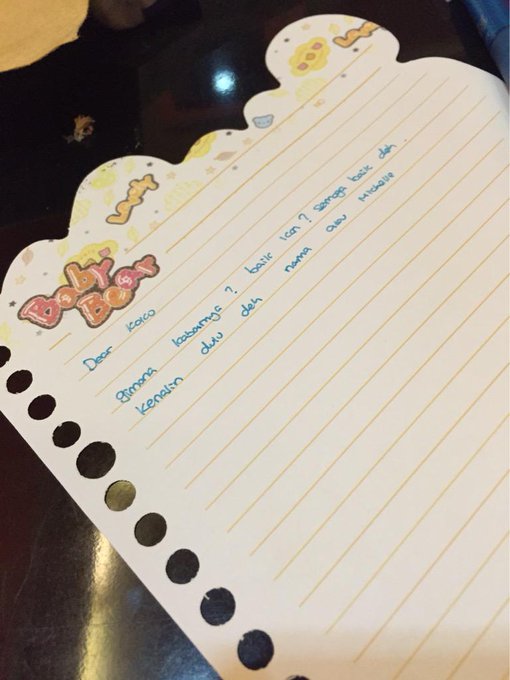 Lovely
Lovely
Baby
Bear
Dear koko
gimana kabarnya? baik kan? semoga baik deh.
kenalin dulu deh nama aku Michelle